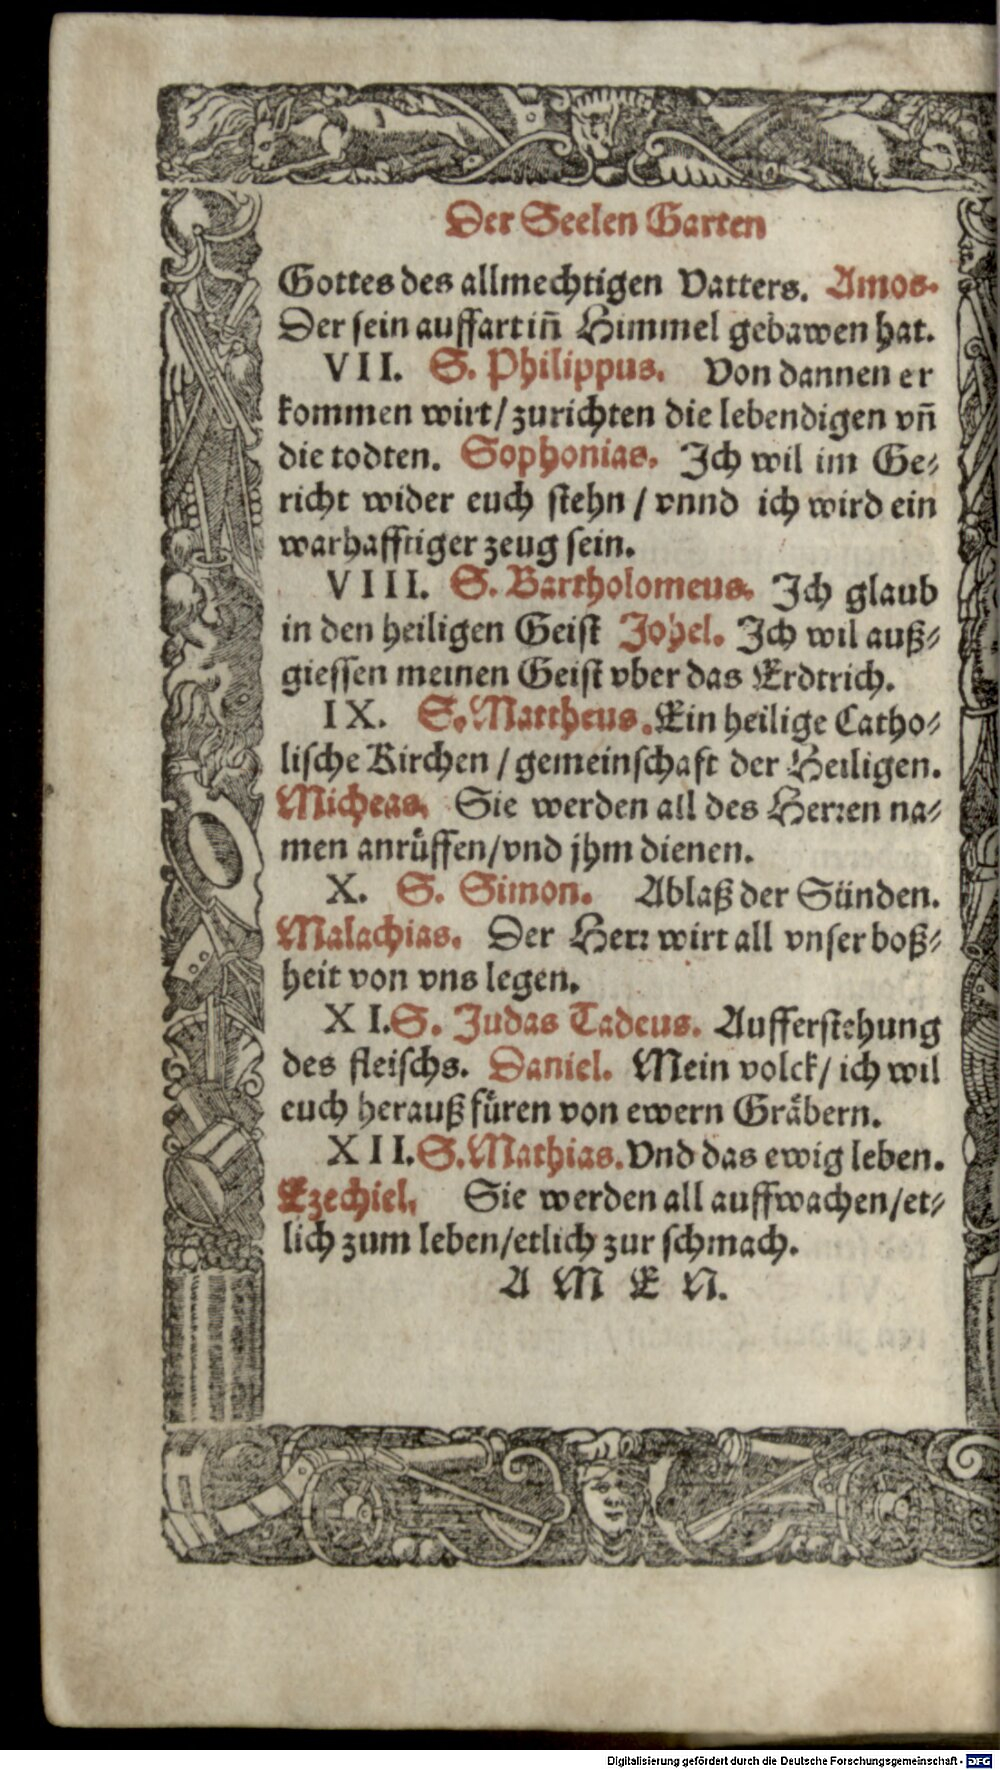 Der Seelen Garten
Gottes des allmechtigen Vatters. Amos.
Der sein auffart iñ Himmel gebawen hat.
VII. S. Philippus. Von dannen er
kommen wirt/ zurichten die lebendigen vñ
die todten. Sophonias. Ich wil im Ge⸗
richt wider euch stehn / vnnd ich wird ein
warhafftiger zeug sein.
VIII. S. Bartholomeus. Ich glaub
in den heiligen Geist Johel. Ich wil auß⸗
giessen meinen Geist vber das Erdtrich.
IX. S. Mattheus. Ein heilige Catho⸗
lische Kirchen / gemeinschaft der Heiligen.
Micheas. Sie werden all des Herren na⸗
men anrůffen/vnd jhm dienen.
X. S. Simon. Ablaß der Sünden.
Malachias. Der Herr wirt all vnser boß⸗
heit von vns legen.
XI. S. Judas Tadeus. Aufferstehung
des fleischs. Daniel. Mein volck/ ich wil
euch herauß fůren von ewern Gräbern.
XII. S. Mathias. Vnd das ewig leben.
Ezechiel. Sie werden all auffwachen/et⸗
lich zum leben/etlich zur schmach.
A M E N.
Digitalisierung gefördert durch die Deutsche Forschungsgemeinschaft - DFG